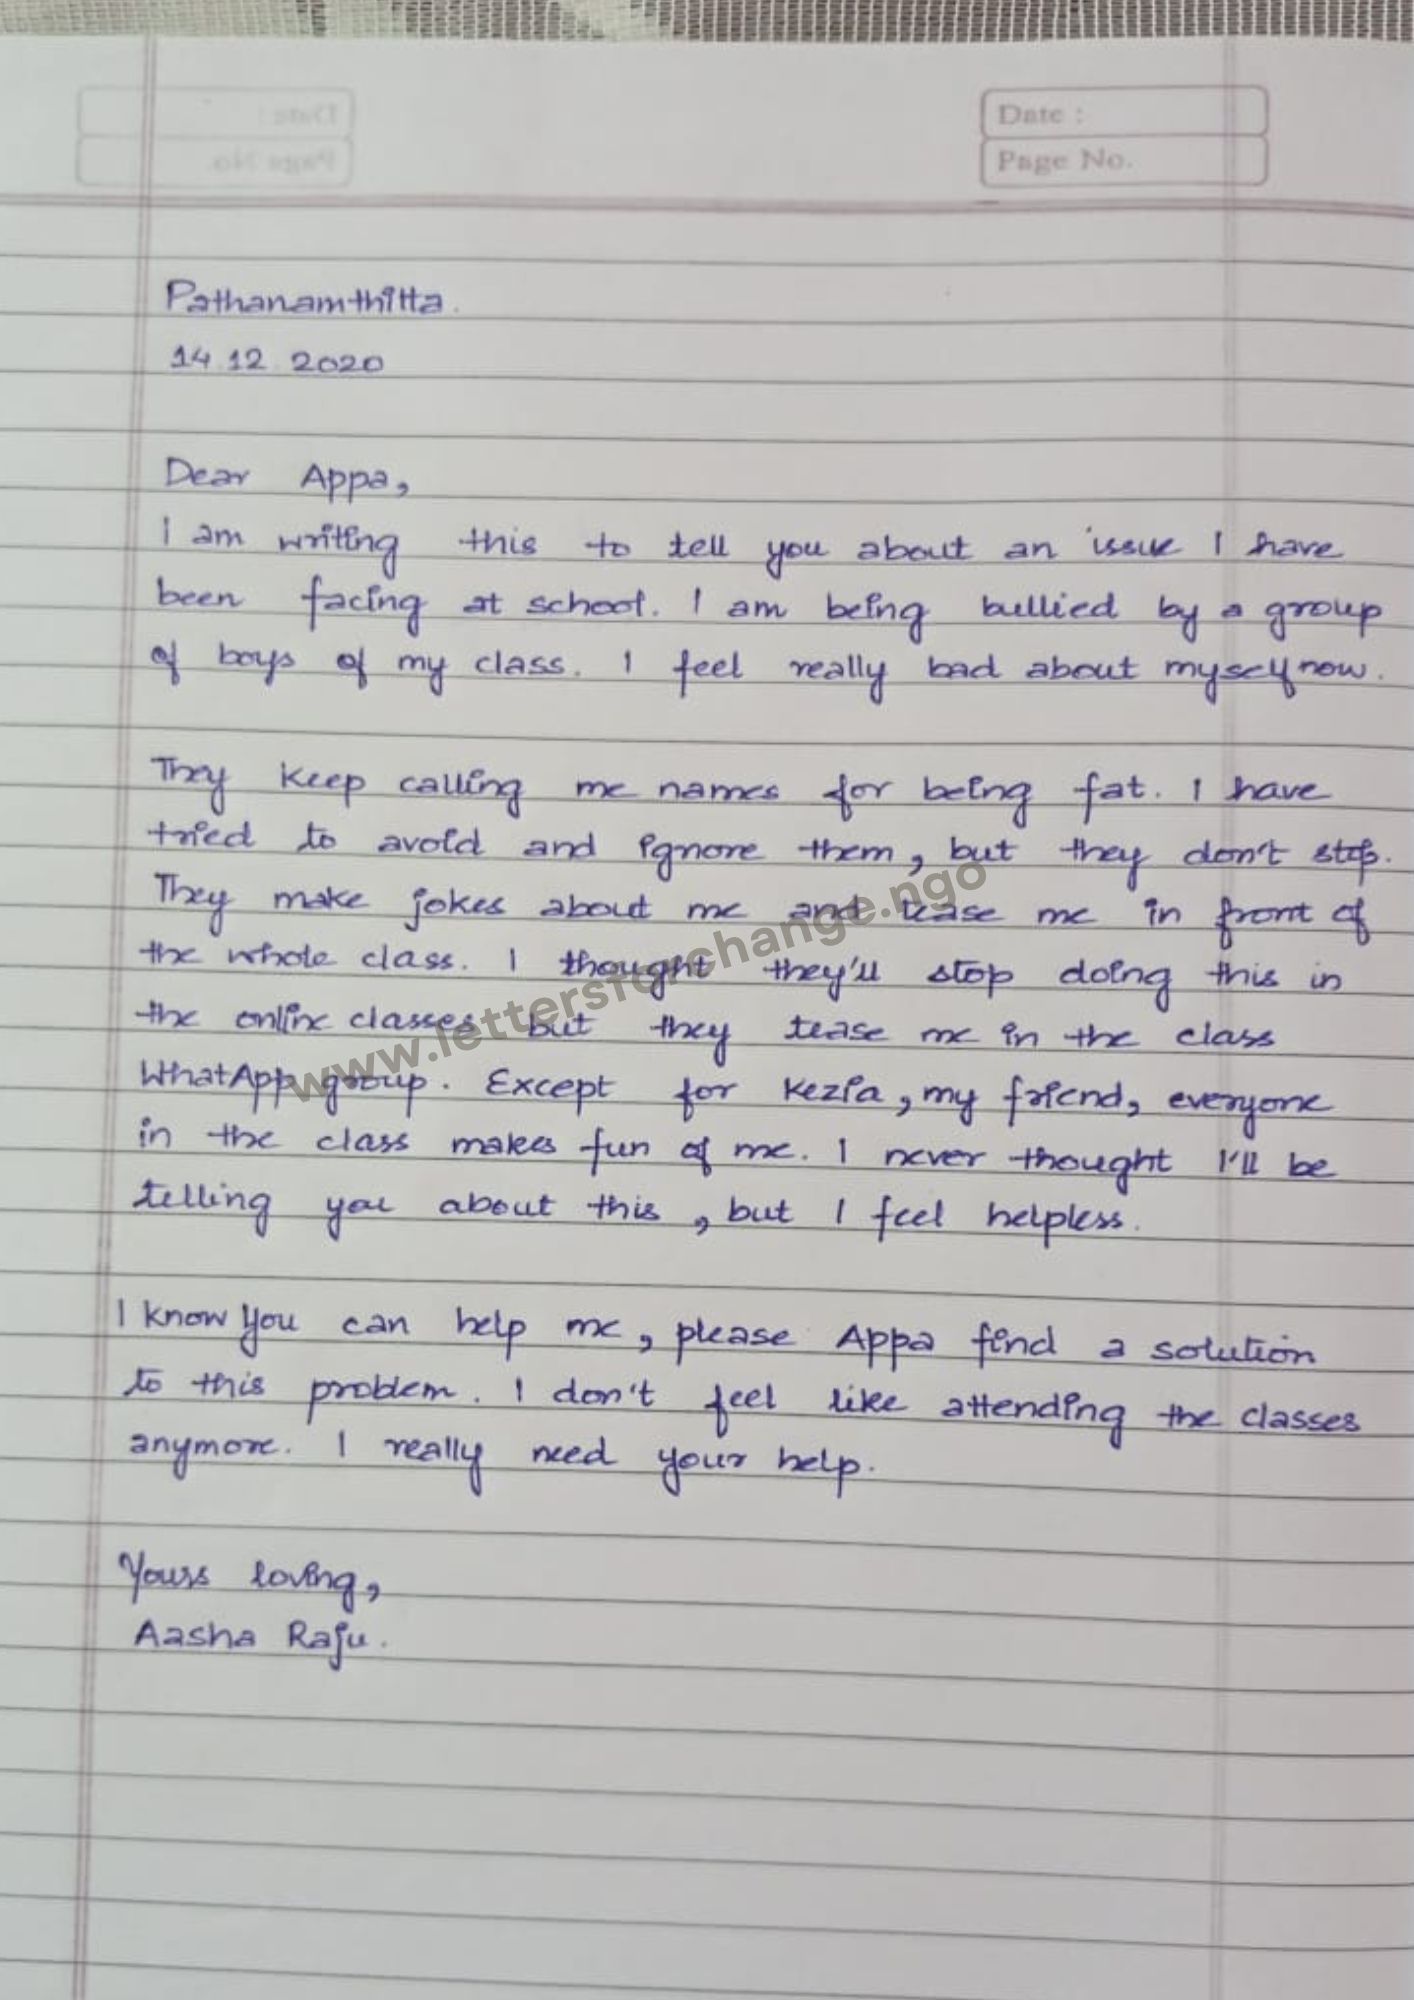 Date :
Page No.
Pathanamthitta.
14.12.2020
Dear Appa,
I am writing this to tell you about an issue I have
been facing at school. I am being bullied by a group
of boys of my class. I feel really bad about myself now.
They keep calling me names for being fat. I have
tried to avoid and ignore them, but they don't stop.
They make jokes about me and tease me in front of
the whole class. I thought they'll stop doing this in
the online classes but they tease me in the class
WhatApp group. Except for Kezia, my friend, everyone
in the class makes fun of me. I never thought I'll be
telling you about this, but I feel helpless.
I know you can help me, please Appa find a solution
to this problem. I don't feel like attending the classes
anymore. I really need your help.
Yours loving,
Aasha Raju.
www.lettersforchange.ngo